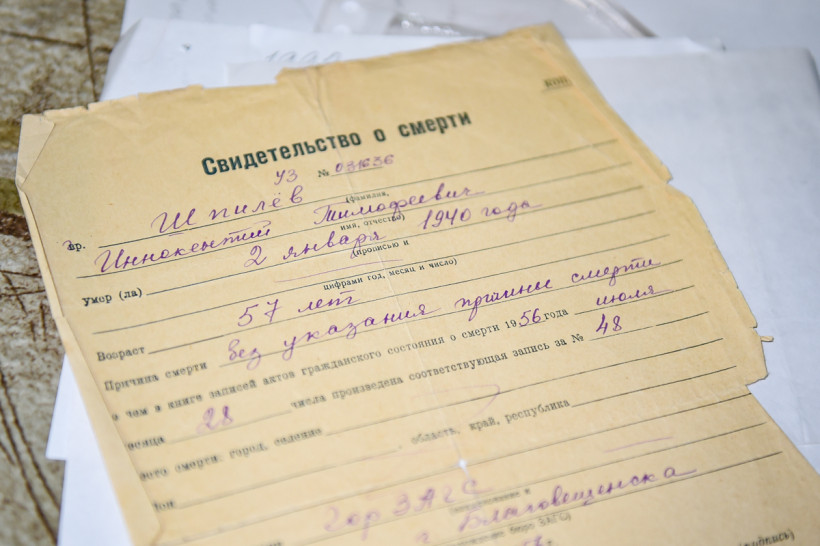 КОП
Свидетельство о смерти
УЗ № 031636
гр. Шпилёв
(фамилия,
Иннокентий Тимофеевич
имя, отчество)
умер (ла) 2 января 1940 года
(прописью и
цифрами год, месяц и число)
Возраст 57 лет
Причина смерти без указания причины смерти
о чем в книге записей актов гражданского состояния о смерти 1956 года июля
месяца 28 числа произведена соответствующая запись за № 48
смерти: город, селение
, область, край, республика
гор ЗАГС
г. Благовещенска
бюро ЗАГС)